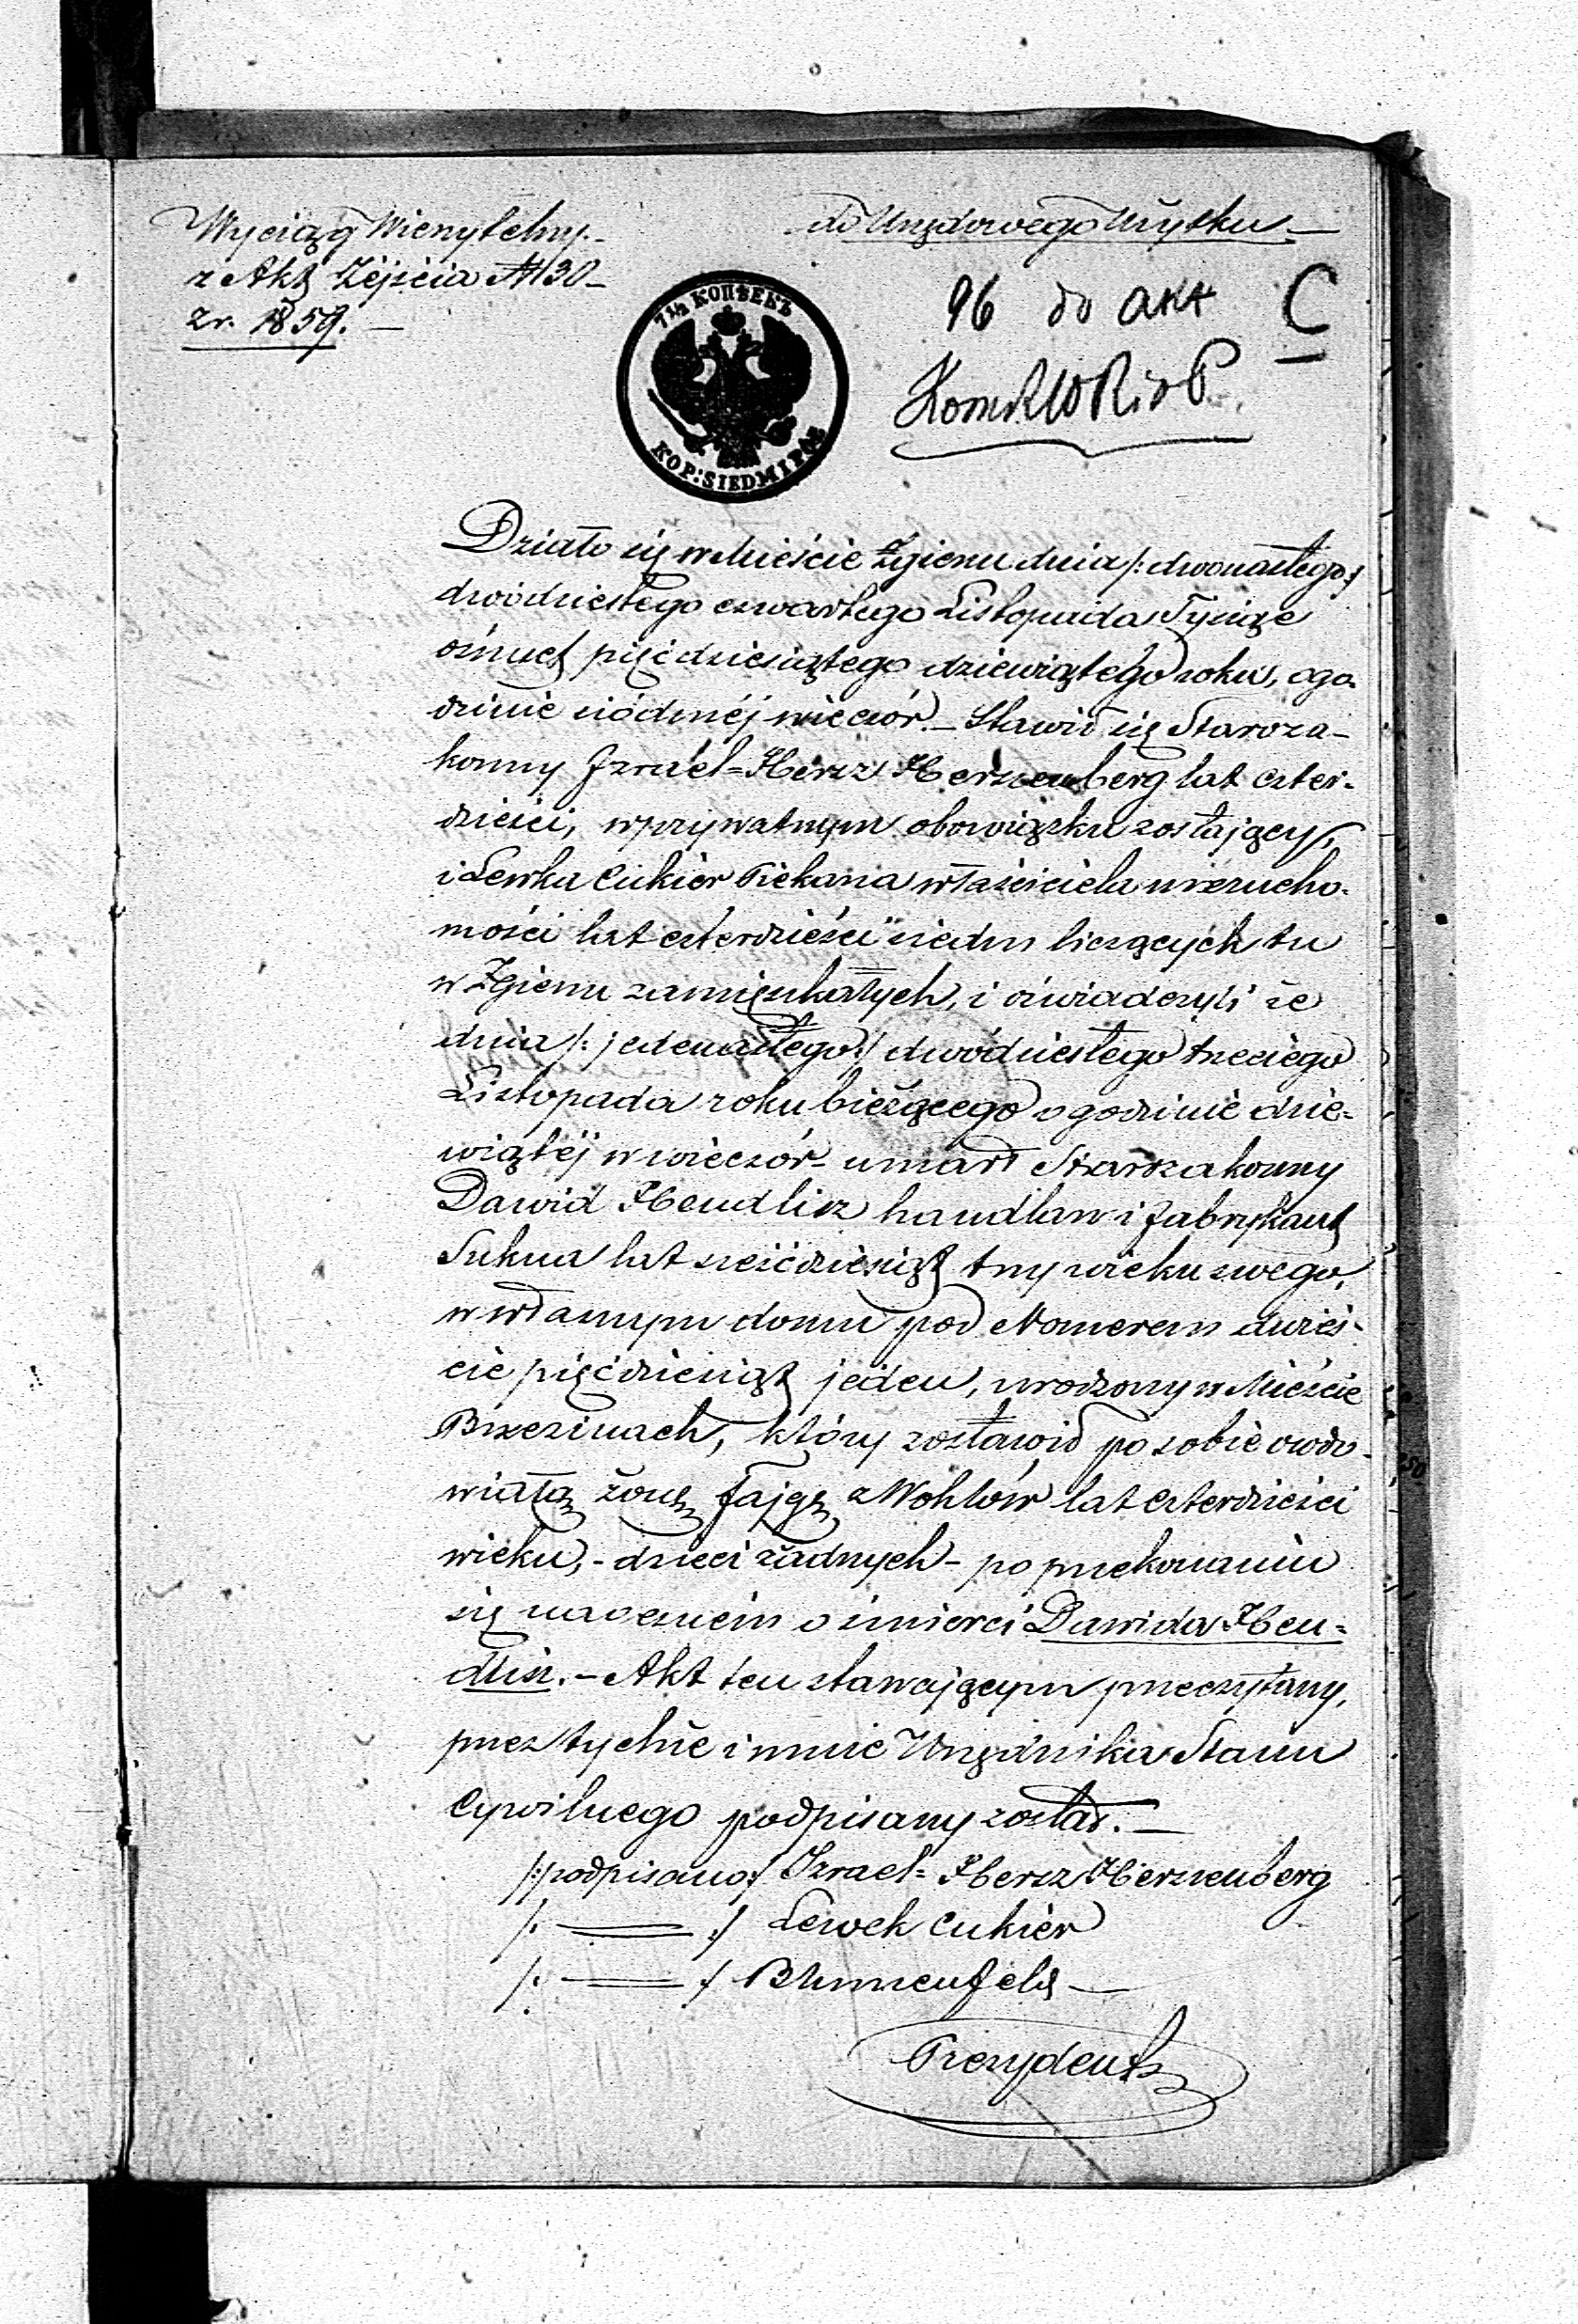 Wyciąg Wierzytelny.-
z Akt Zéjścia № 130-
z r. 1859. —
do Urzędowego Użytku. —
96 do akt C
7½ КОПѢЕКЪ
KOP: SIEDM I PÓŁ
Działo się w Mieście Zgierzu dnia /: dwónastego :/
dwódziestego czwartego Listopada Tysiąc
ośmset pięćdziesiątego dziewiątego roku, o go-
dzinie siódméj wieczór. – Stawił się Staroza-
konny Izraél=Hersz Herszenberg lat czter-
dzieści, w prywatnym obowiązku zostający,
i Lewka Cukier Piekarza właściciela nierucho-
mości lat czterdzieści siedm liczących tu
w Zgierzu zamięszkałych, i oświadczyli że
dnia /: jedenastego :/ dwódziestego trzeciego
Listopada roku bieżącego o godzinie dzie-
wiątéj w wieczór - umarł Starozakonny
Dawid Hendlisz handlarz i fabrykant
Sukna lat sześćdziesiąt trzy wieku swego,
w własnym domu pod Nomerem dwieś-
cie pięćdziesiąt jeden, urodzony w Mieście
Brzezinach, który zostawił po sobie owdo-
wiałą żonę Fajgę z Wohlów lat czterdzieści
wieku, - dzieci żadnych - po przekonaniu
się naocznem o śmierci Dawida Hen=
dlisz. – Akt ten stawającym przeczytany,
przez tychże i mnie Urzędnika Stanu
Cywilnego podpisany został. —
/: podpisano :/ Izrael= Hersz Herszenberg
/: —— :/ Lewek Cukier
/: —— :/ Blumenfeld —
Prezydent